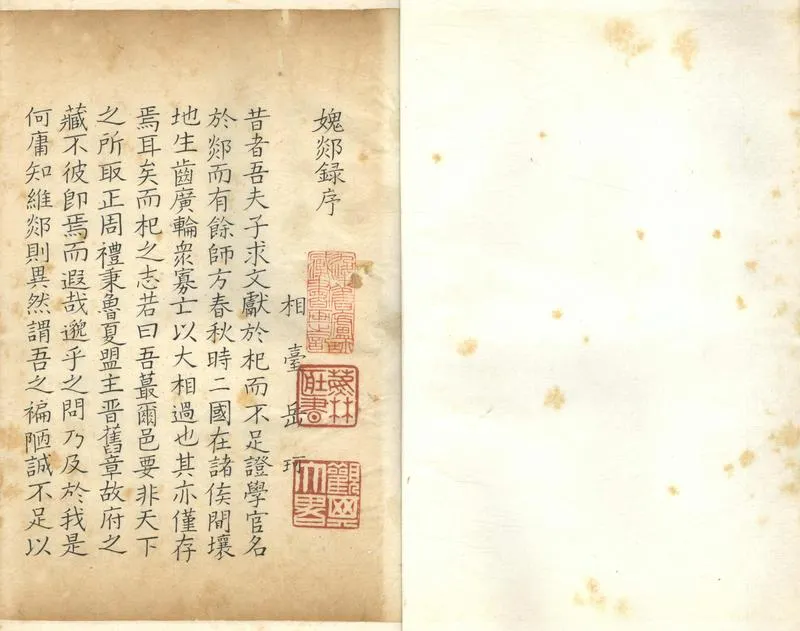 媿郯録序
相臺岳珂
昔者吾夫子求文獻於杞而不足證學官名
於郯而有餘師方春秋時二國在諸侯間壤
地生齒廣輪衆寡士以大相過也其亦僅存
焉耳矣而杞之志若曰吾蕞爾邑要非天下
之所取正周禮秉魯夏盟主晋舊章故府之
藏不彼卽焉而遐哉邈乎之問乃及於我是
何庸知維郯則異然謂吾之褊陋誠不足以